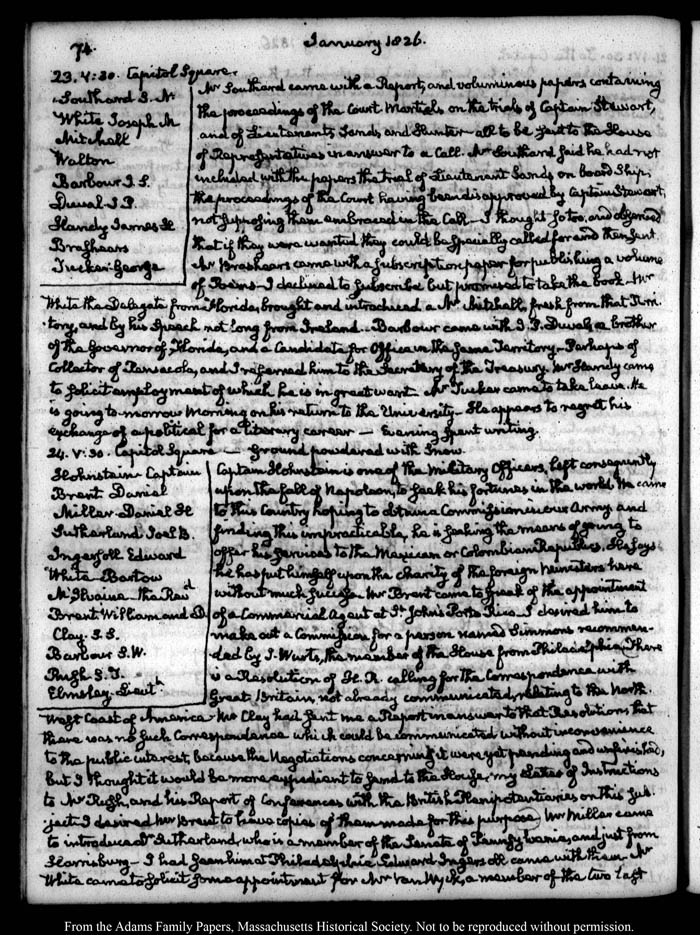 74.
January 1826.
23. V:30. Capitol Square.
Southard S. N
White Joseph M
Mitchell
Walton
Barbour J. S.
Duval J. P.
Handy James H
Brashears
Tucker George
Mr Southard came with a Report, and voluminous papers containing
the proceedings of the Court Martials on the trials of Captain Stewart,
and of Lieutenants Sands, and Hunter—all to be sent to the House
of Representatives in answer to a Call. Mr Southard said he had not
included with the papers the trial of Lieutenant Sands on board Ship,
the proceedings of the Court having been disapproved by Captain Stewart,
not supposing them embraced in the Call—I thought so too, and observed
that if they were wanted they could be specially called for and then sent.
Mr Brashears came with a subscription paper for publishing a volume
of Poems—I declined to subscribe but promised to take the book—Mr
White the Delegate from Florida, brought and introduced a Mr Mitchell, fresh from that Terri-
tory, and by his speech not long from Ireland. Barbour came with J. P. Duval, a brother
of the Governor of Florida, and a Candidate for Office in the same Territory—Perhaps of
Collector of Pensacola, and I referred him to the Secretary of the Treasury. Mr Handy came
to solicit employment of which he is in great want. Mr Tucker came to take leave. He
is going to-morrow Morning on his return to the University—He appears to regret his
exchange of a political for a literary career—Evening spent writing.
24. V:30. Capitol Square — Ground powdered with Snow.
Hohnstein Captain
Brent Daniel
Miller Daniel H
Sutherland Joel B.
Ingersoll Edward
White—Bartow
McIlvaine—the Revd
Brent William and D
Clay. S. S.
Barbour S. W.
Rush S. T.
Elmsley Lieutt
Captain Hohnstein is one of the Military Officers, left consequently
upon the fall of Napoleon, to seek his fortunes in the world. He came
to this Country hoping to obtain a Commission in our Army, and
finding this impracticable, he is seeking the means of going to
offer his services to the Mexican or Colombian Republics. He says
he has put himself upon the charity of the foreign Ministers here
without much success. Mr Brent came to speak of the appointment
of a Commercial Agent at St. John's Porto Rico. I desired him to
make out a Commission for a person named Simmons recommen-
ded by J. Wurts, the member of the House from Philadelphia. There
is a Resolution of H. R. calling for the Correspondence with
Great Britain, not already communicated, relating to the North-
West Coast of America—Mr Clay had sent me a Report in answer to that Resolution, that
there was no such Correspondence which could be communicated without inconvenience
to the public interest, because the Negotiations concerning it were yet pending and unfinished,
but I thought it would be more expedient to send to the House, my Letter of Instructions
to Mr Rush, and his Report of Conferences with the British Plenipotentiaries on this sub-
ject. I desired Mr Brent to have copies of them made for this purpose. Mr Miller came
to introduce Dr Sutherland, who is a member of the Senate of Pennsylvania, and just from
Harrisburg—I had seen him at Philadelphia. Edward Ingersoll came with them—Mr
White came to solicit some appointment for Mr Van Wyck, a member of the two last
From the Adams Family Papers, Massachusetts Historical Society. Not to be reproduced without permission.